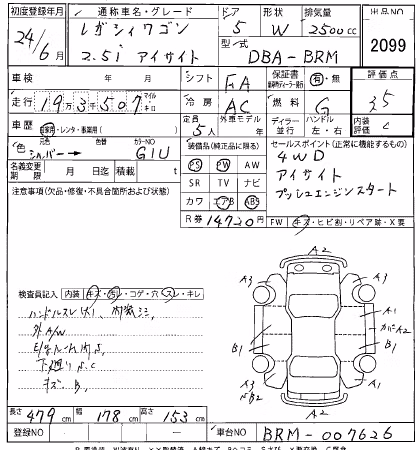 初度登録年月 通称車名・グレード ドア 形状 排気量 出品NO
24/6月 レガシィワゴン 2.5i アイサイト 5 W 2500cc 2099
型式 DBA-BRM
車検 年 月 シフト FA 保証書 有・無 評価点
走行 193507 マイル キロ 冷房 AC 燃料 G 3.5
車歴 自家用・レンタ・事業用( ) 定員 5人 外車モデル年 ディーラー・並行 ハンドル 左・右 内装評価 C
色 シルバー→ 色替 カラーNO G1U 装備品(純正品に限る) セールスポイント(正常に機能するもの)
名義変更期限 月 日迄 積載 t PS PW AW 4WD
注意事項(欠品・修復・不具合箇所および状態) SR TV ナビ アイサイト
カワ エアB ABS プッシュエンジンスタート
R券 14720円 FW キズ・ヒビ割・リペア跡・X要
検査員記入 内装 キズ・汚レ・コゲ・穴・スレ・キレ
ハンドルスレ(大)、
外A/W
下廻りS、C
キズ B、
A2
A3 A3 A1
A1 A2
B1 B1
A3 A3
B2
A2
長さ 479cm 幅 178cm 高さ 153cm
登録NO 車台NO BRM-007626